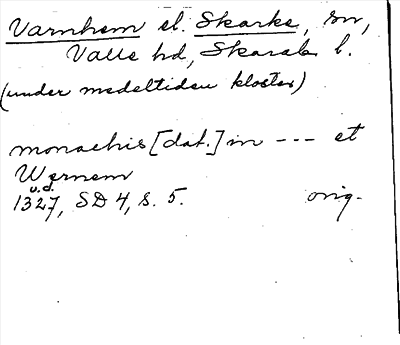 Varnhem el. Skarke, sn,
Valle hd, Skarab. l.
(under medeltiden kloster)
monachis [dat.] in --- et
Wernem
u.d.
1327, SD 4, s. 5. orig.